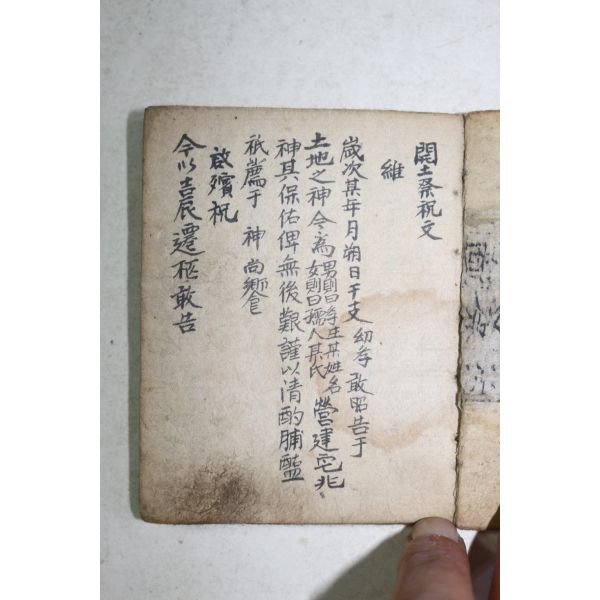 開土祭祝文
維
歲次某年月朔日干支 幼斈敢昭告于
土地之神 今爲 男則曰斈生某姓名 女則曰孺人某氏 營建宅兆
神其保佑俾無後艱謹以清酌脯醢
祇薦于 神 尚饗
啟殯祝
今以吉辰遷柩敢告